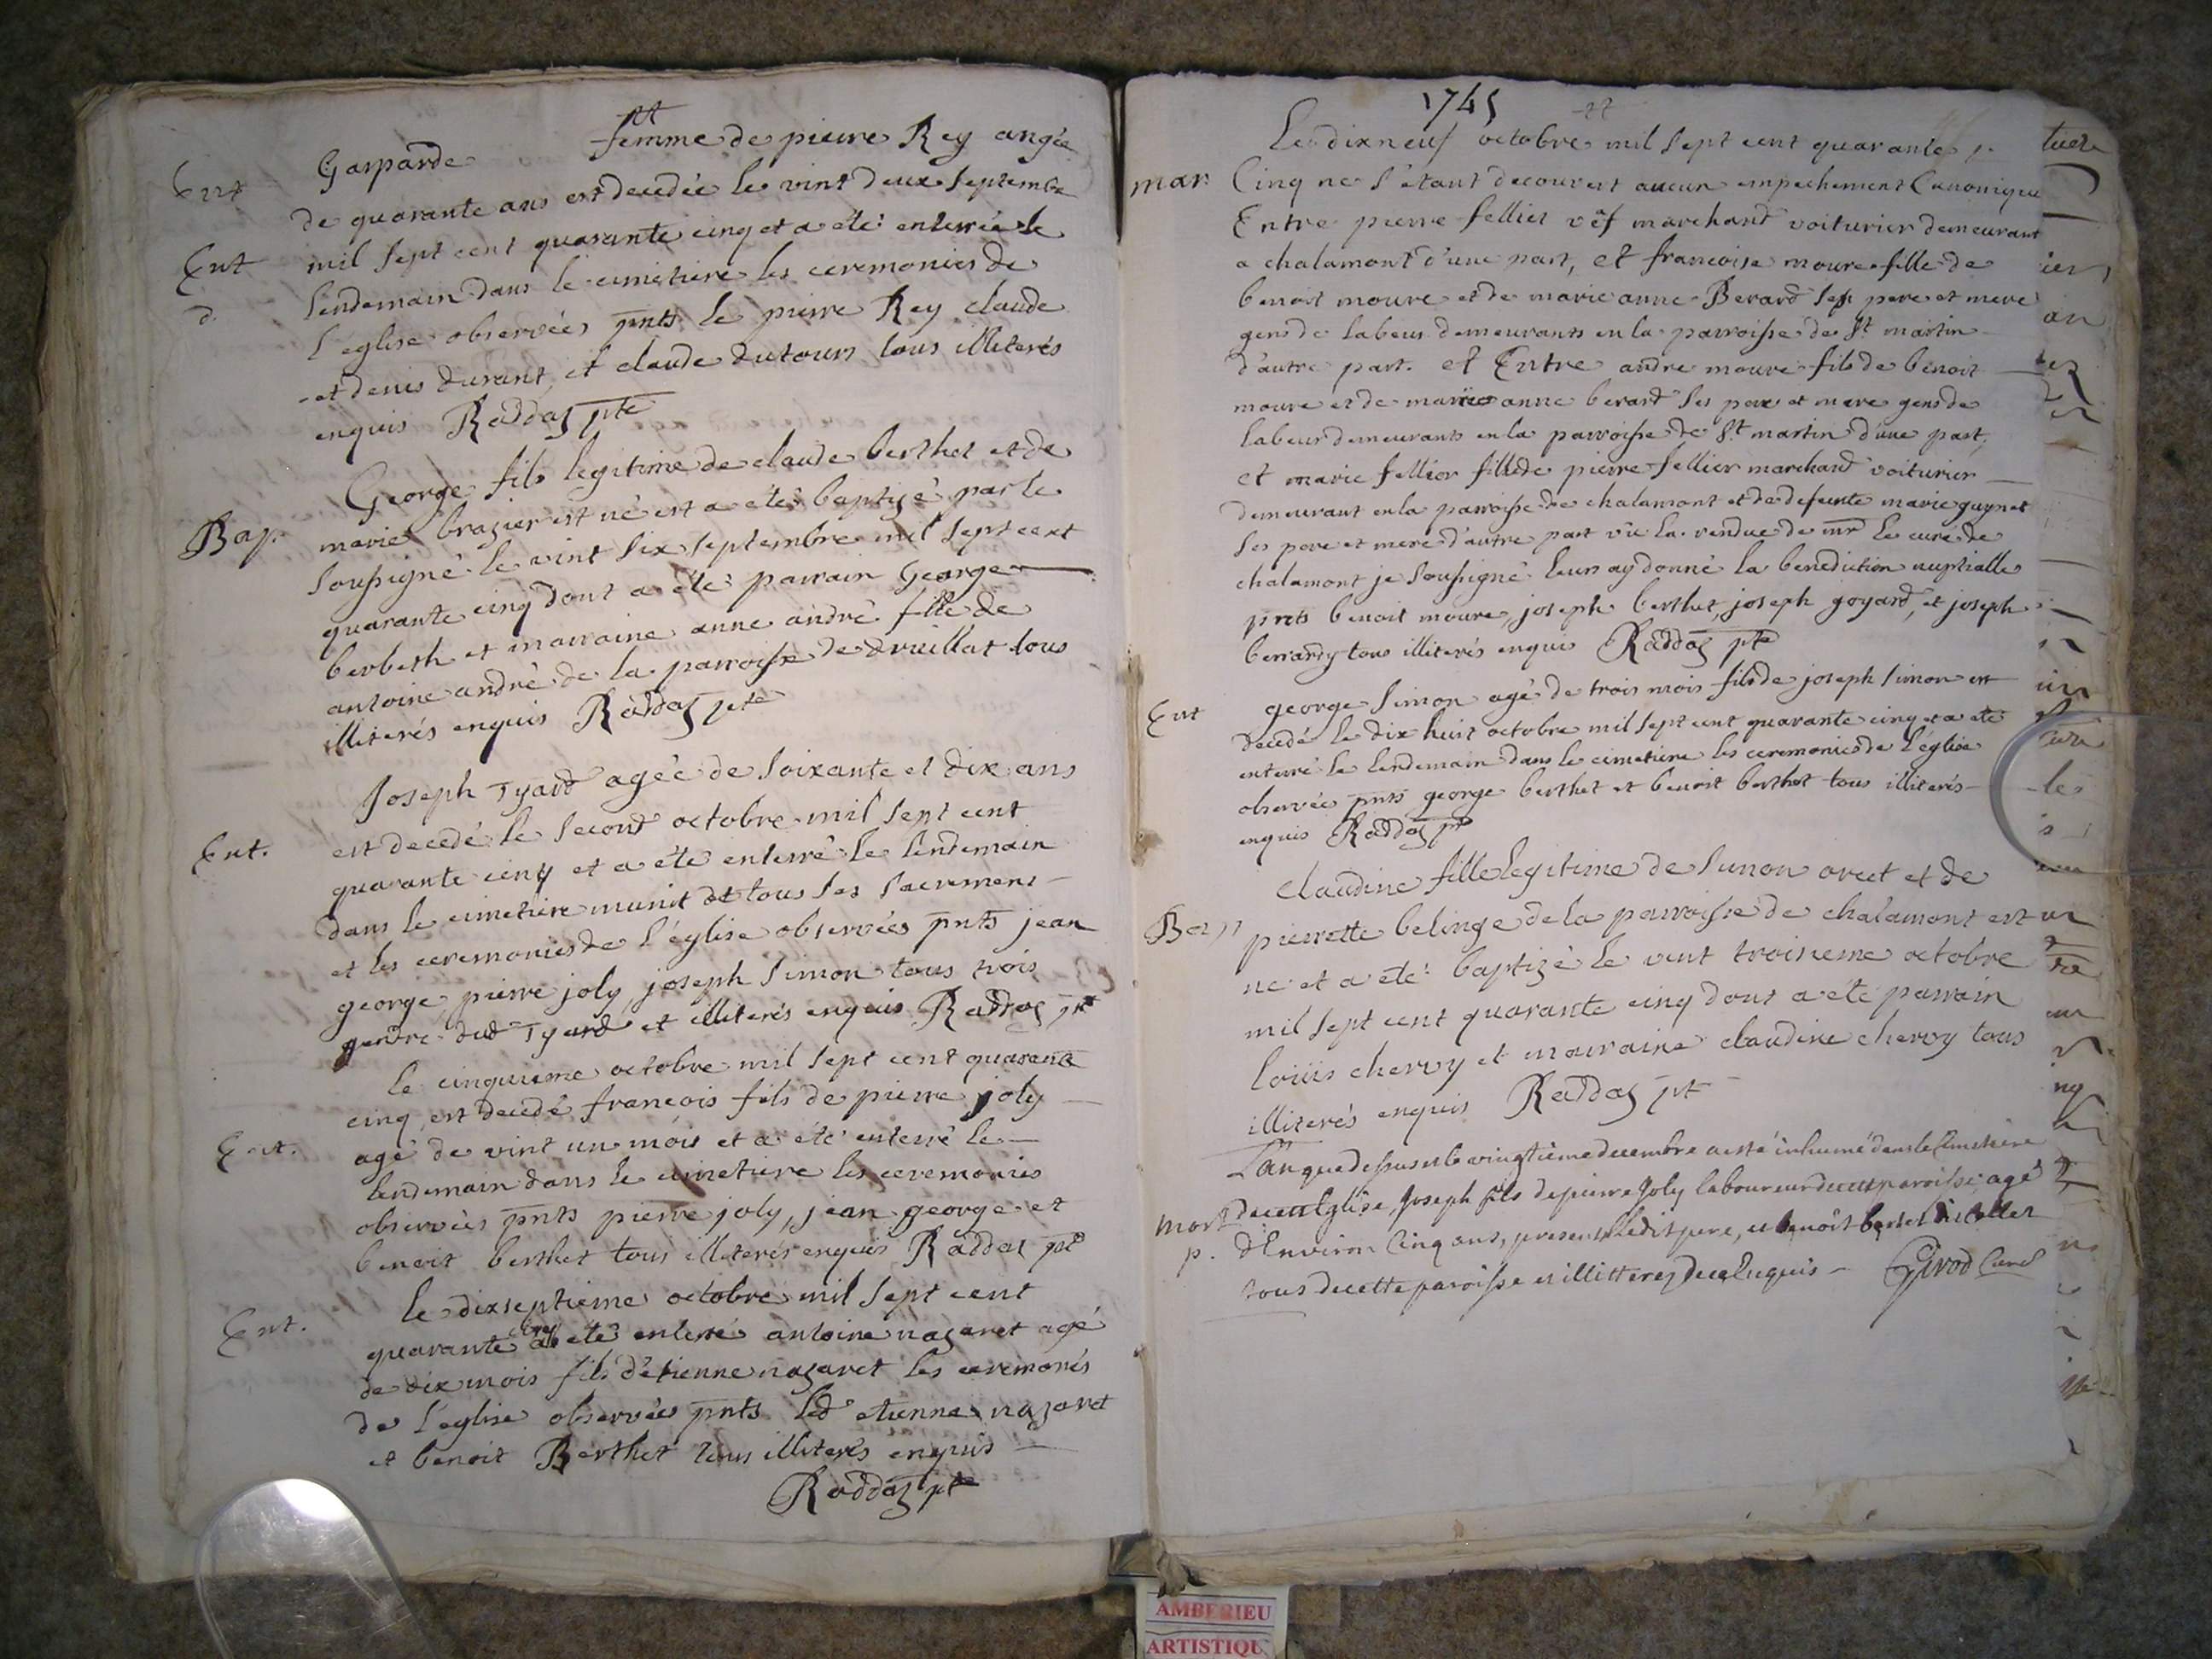 Ent
Gasparde femme de pierre Rey angée
de quarante ans est decedée le vint deux septembre
Ent
mil sept cent quarante cinq et a eté enterrée le
d.
lendemain dans le cimetiere les ceremonies de
l'eglise observées pnts le pierre Rey claude
et denis durant, et claude dutours tous illiterés
enquis Raddaz ptre
Bap.
George fils legitime de claude berthet et de
marie brazier est né est a eté baptizé par le
soussigné le vint six septembre mil sept cent
quarante cinq dont a eté parrain George
berbeth et marraine anne andré fille de
antoine andré de la parroisse de druillat tous
illiterés enquis Raddaz ptre
Joseph Tyard agée de soixante et dix ans
Ent.
est decedé le second octobre mil sept cent
quarante cinq et a eté enterré le lendemain
dans le cimetiere munit de tous ses sacremens
et les ceremonies de l'église observées pnts jean
george, pierre joly, joseph simon tous trois
gendre dud Tyard et illiterés enquis Raddaz ptre
le cinquieme octobre mil sept cent quarente
cinq est decedé francois fils de pierre joly
Ent.
agé de vint un mois et a eté enterré le
lendemain dans le cimetiere les ceremonies
observées pnts pierre joly, jean george et
benoit berthet tous illiterés enquis Raddaz ptre
Ent.
le dixseptieme octobre mil sept cent
quarante cinq a eté enterré antoine nazaret agé
de dix mois fils d'étienne nazaret les ceremonies
de l'eglise observées pnts led etienne nazaret
et benoit Berthet tous illiterés enquis
Raddaz ptre
1745
Le dixneuf octobre mil sept cent quarante
mar.
Cinq ne s'etant decouvert aucun empechement Canonique
Entre pierre sellier vëf marchand voiturier demeurant
a chalamont d'une part, et francoise moure fille de
benoit moure et de marie anne Berard ses pere et mere
gens de labeur demeurants en la parroisse de St martin
d'autre part. et Entre andre moure fils de benoit
moure et de marie anne berard ses pere et mere gens de
labeur demeurants en la parroisse de St martin d'une part,
et marie sellier fille de pierre sellier marchand voiturier
demeurant en la parroisse de chalamont et de defeunte marie guynet
ses pere et mere d'autre part vû la rendue de mr le cure de
chalamont je soussigné leurs ay donné la benediction nuptialle
pnts benoit moure, joseph berthet, joseph goyard, et joseph
berrardy tous illiterés enquis Raddaz ptre
Ent
george simon agé de trois mois fils de joseph simon est
decedé le dix huit octobre mil sept cent quarante cinq et a eté
enterré le lendemain dans le cimetiere les ceremonies de l'église
observées pnts george berthet et benoit berthet tous illiterés
enquis Raddaz ptre
claudine fille legitime de simon orcet et de
Bap
pierrette belinge de la parroisse de chalamont est
ne et a eté baptizé le vint troisieme octobre
mil sept cent quarante cinq dont a eté parrain
louis chervy et marraine claudine chervy tous
illiterés enquis Raddaz ptre
L'an que dessus et le vingtième decembre a esté inhumé dans le Cimetiere
mort
de cette Eglise, Joseph fils de pierre Joly laboureur de cette paroisse, agé
p.
d'Environ Cinq ans, presents ledit pere, et benoît bertet
tous de cette paroisse et illitterez de ce Enquis Girod Curé
AMBERIEU
ARTISTIQU